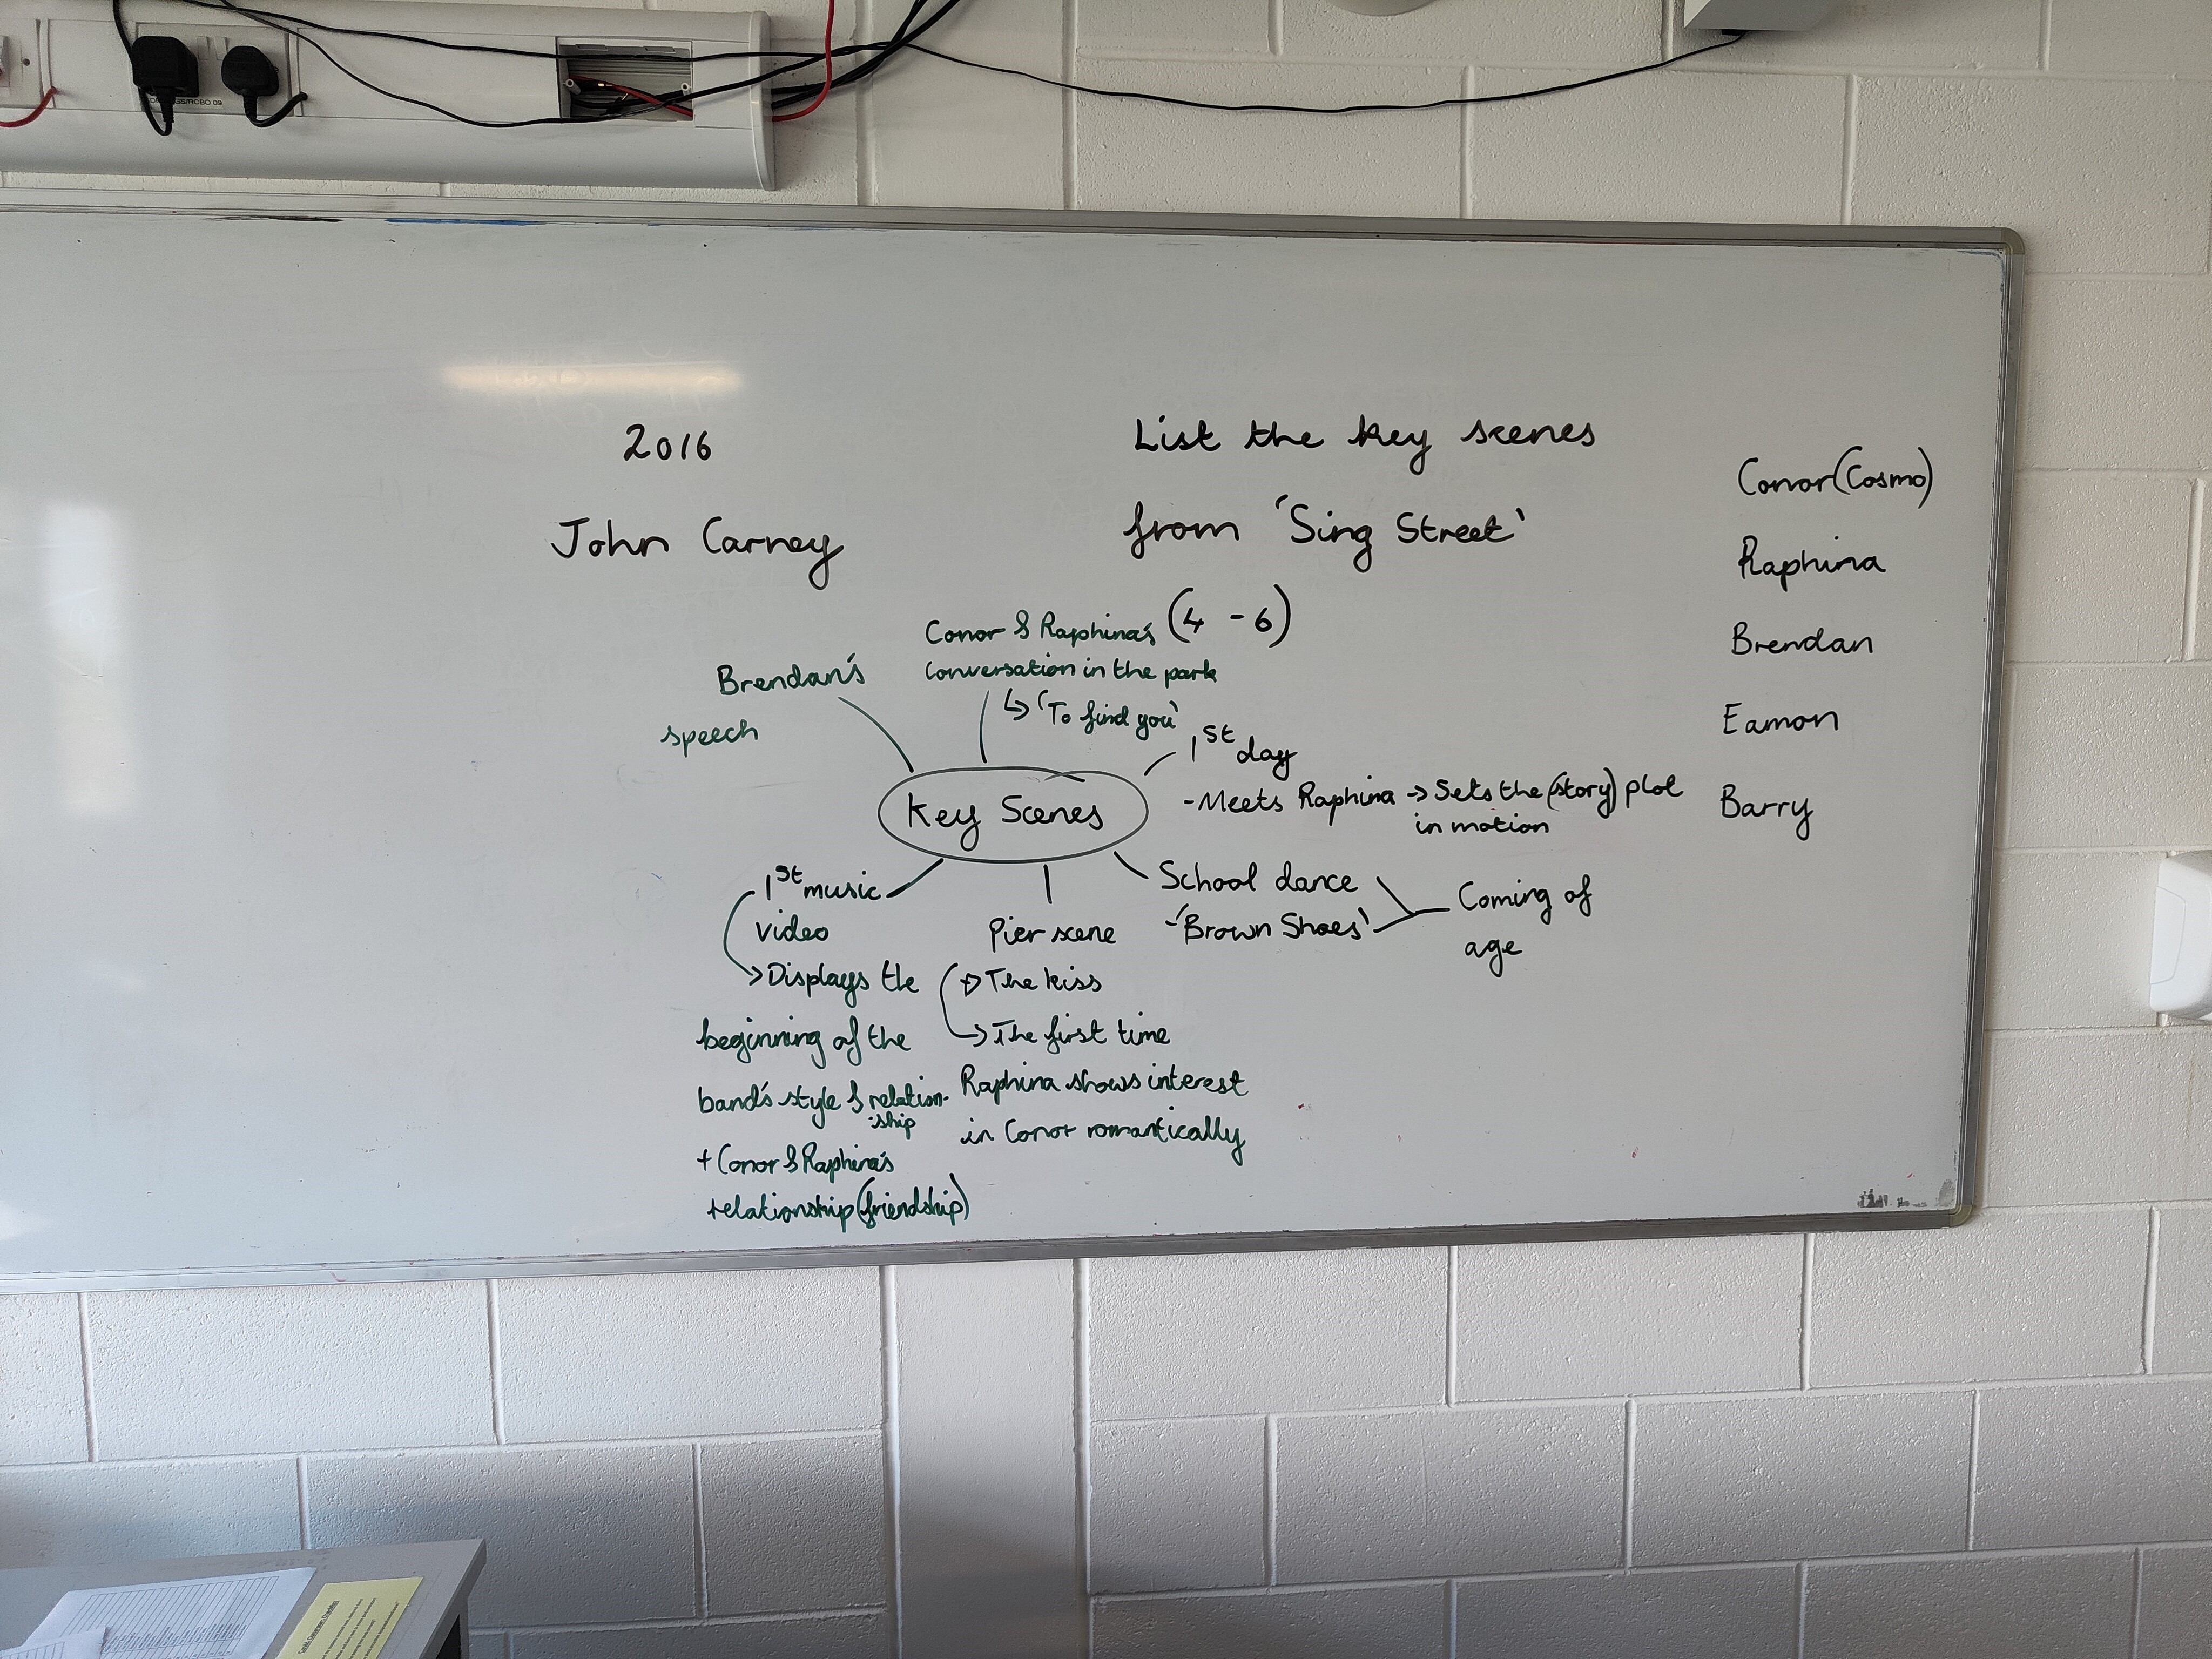 2016
John Carney
List the key scenes
from 'Sing Street'
(4 - 6)
Conor (Cosmo)
Raphina
Brendan
Eamon
Barry
Key Scenes
Brendan's
speech
Conor & Raphina's
conversation in the park
↳ 'To find you'
1st day
- Meets Raphina → Sets the (story) plot
in motion
School dance
- 'Brown Shoes'
Coming of
age
Pier scene
→ The kiss
→ The first time
Raphina shows interest
in Conor romantically
1st music
video
→ Displays the
beginning of the
band's style & relation-
-ship
+ Conor & Raphina's
relationship (friendship)